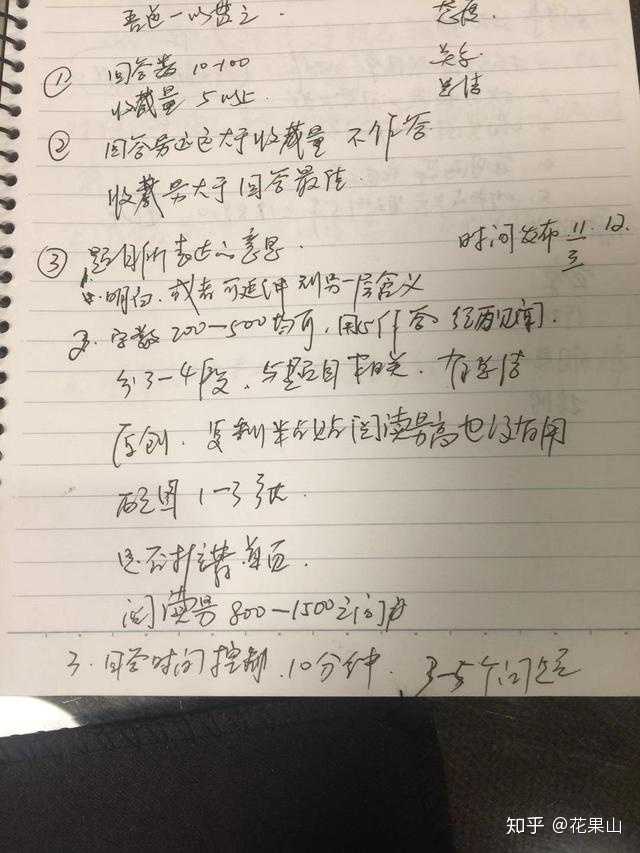 吾道一以贯之.
① 回答数 10-100
收藏量 5以上
总结
② 回答量远远大于收藏量 不作答
收藏量大于回答最佳.
③ 题目所表达的意思.
时间发布 11.12.
三
1. 明白. 或者可延伸到另一层含义
2. 字数 200—500均可, 用作答 经历见闻.
分3—4段, 与题目相关. 有总结
原创. 复制粘贴阅读量高也没有用
配图 1—3张.
是否推荐首页.
阅读量 800—1500之间
3. 回答时间控制. 10分钟. 3-5个问题
知乎 @花果山